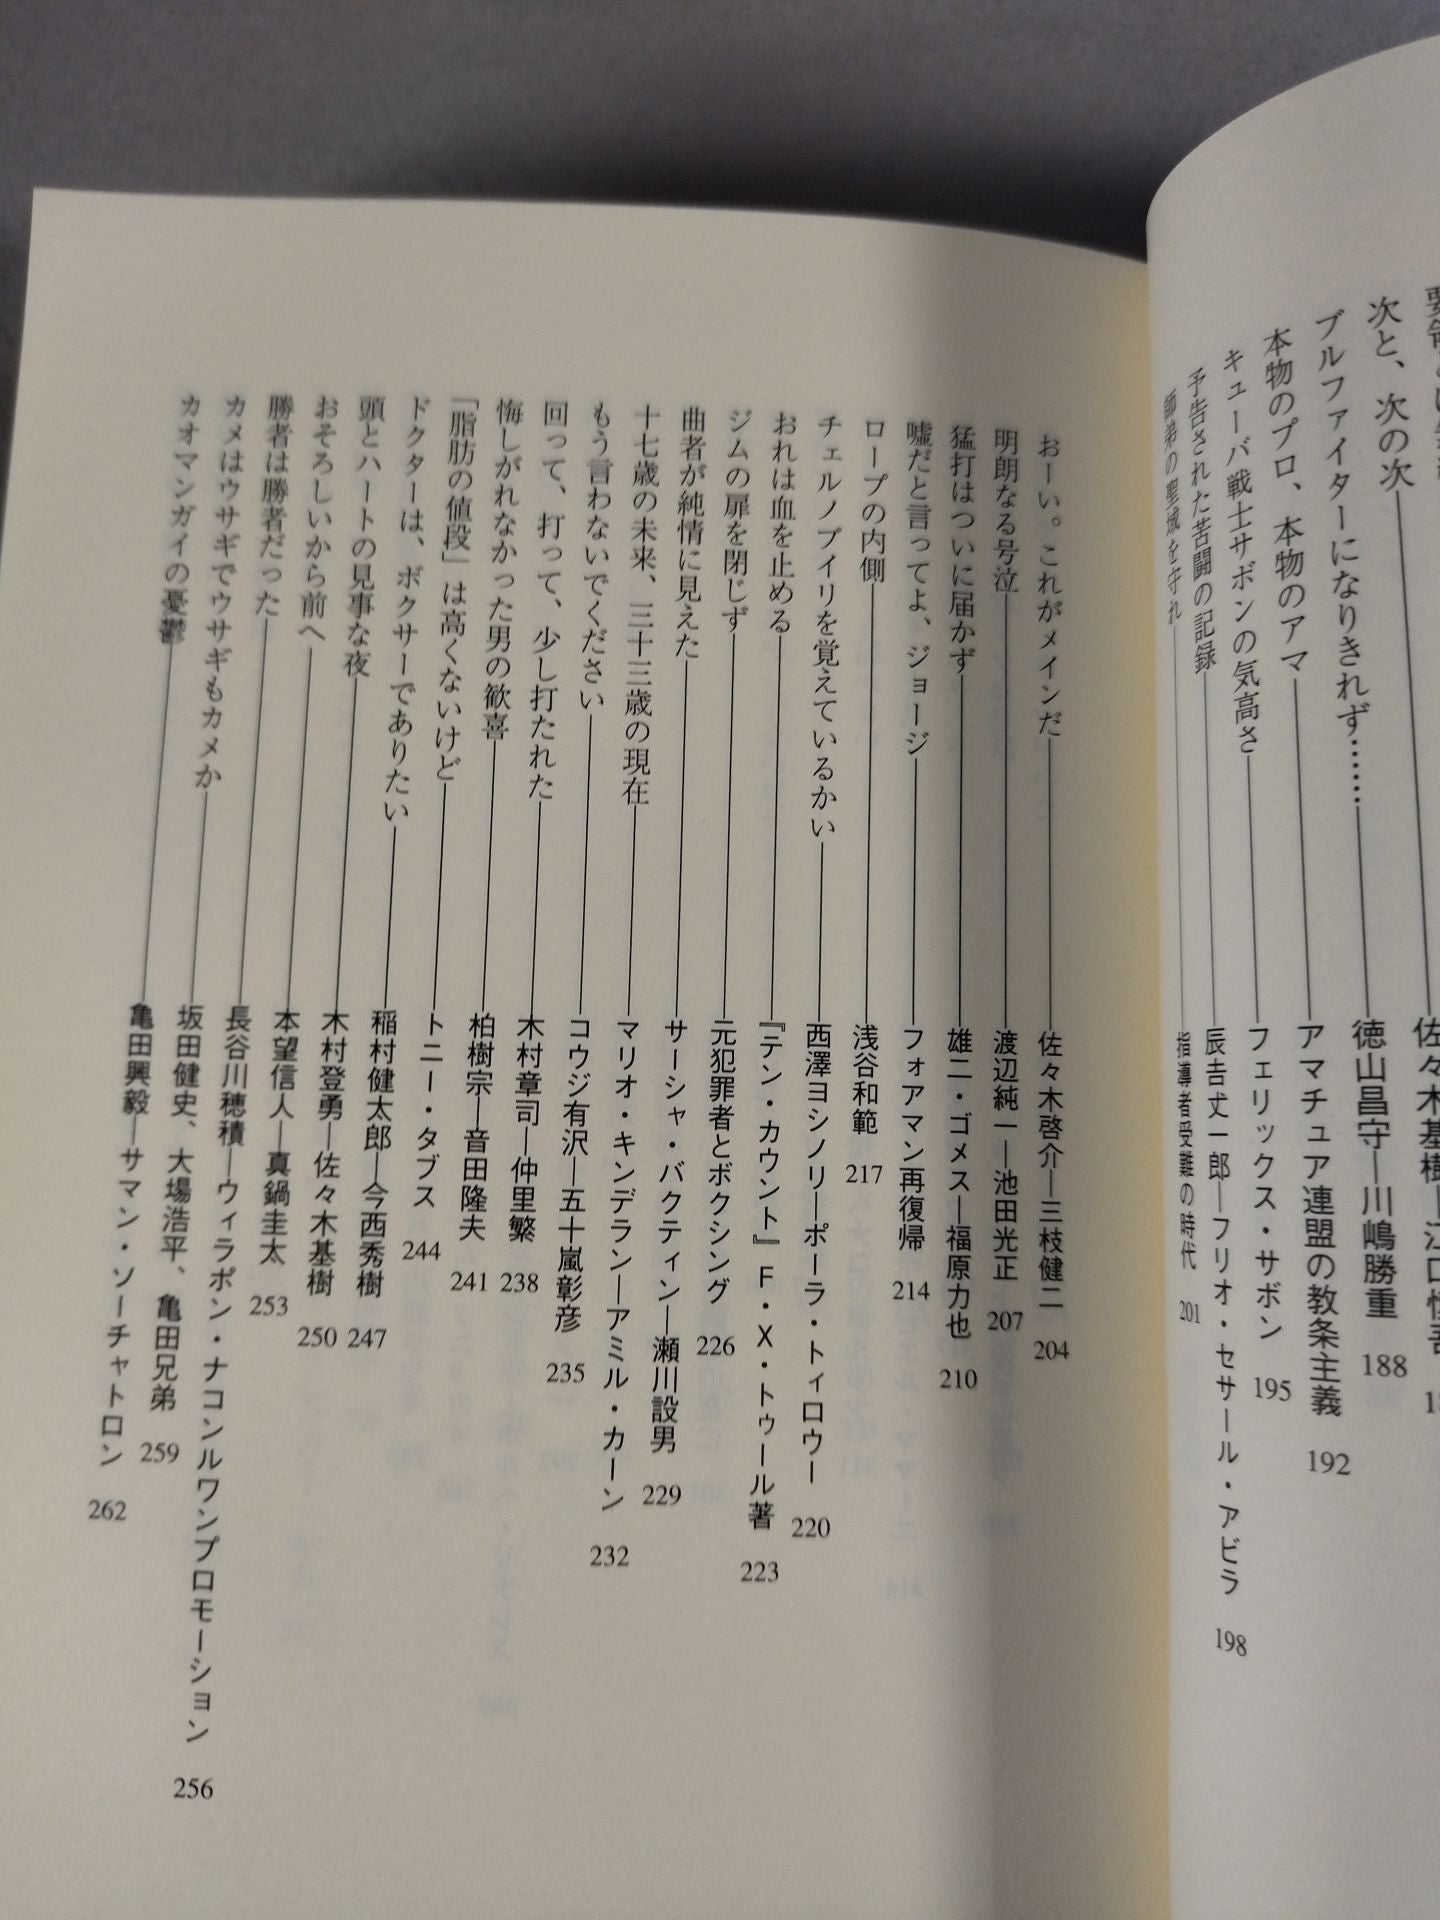 次と、次の次――佐々木基樹―江口慎吾
ブルファイターになりきれず……――徳山昌守―川嶋勝重 188
本物のプロ、本物のアマ――アマチュア連盟の教条主義 192
キューバ戦士サボンの気高さ――フェリックス・サボン 195
予告された苦闘の記録――辰吉丈一郎―フリオ・セサール・アビラ 198
師弟の聖域を守れ――指導者受難の時代 201
おーい。これがメインだ――佐々木啓介―三枝健二 204
明朗なる号泣――渡辺純一―池田光正 207
猛打はついに届かず――雄二・ゴメス―福原力也 210
嘘だと言ってよ、ジョージ――フォアマン再復帰 214
ロープの内側――浅谷和範 217
チェルノブイリを覚えているかい――西澤ヨシノリ―ポーラ・トィロウー 220
おれは血を止める――『テン・カウント』F・X・トゥール著 223
ジムの扉を閉じず――元犯罪者とボクシング 226
曲者が純情に見えた――サーシャ・バクティン―瀬川設男 229
十七歳の未来、三十三歳の現在――マリオ・キンデラン―アミル・カーン 232
もう言わないでください――コウジ有沢―五十嵐彰彦 235
回って、打って、少し打たれた――木村章司―仲里繁 238
悔しがれなかった男の歓喜――柏樹宗―音田隆夫 241
「脂肪の値段」は高くないけど――トニー・タブス 244
ドクターは、ボクサーでありたい――稲村健太郎―今西秀樹 247
頭とハートの見事な夜――木村登勇―佐々木基樹 250
おそろしいから前へ――本望信人―真鍋圭太 253
勝者は勝者だった――長谷川穂積―ウィラポン・ナコンルワンプロモーション 256
カメはウサギでウサギもカメか――坂田健史、大場浩平、亀田兄弟 259
カオマンガイの憂鬱――亀田興毅―サマン・ソーチャトロン 262